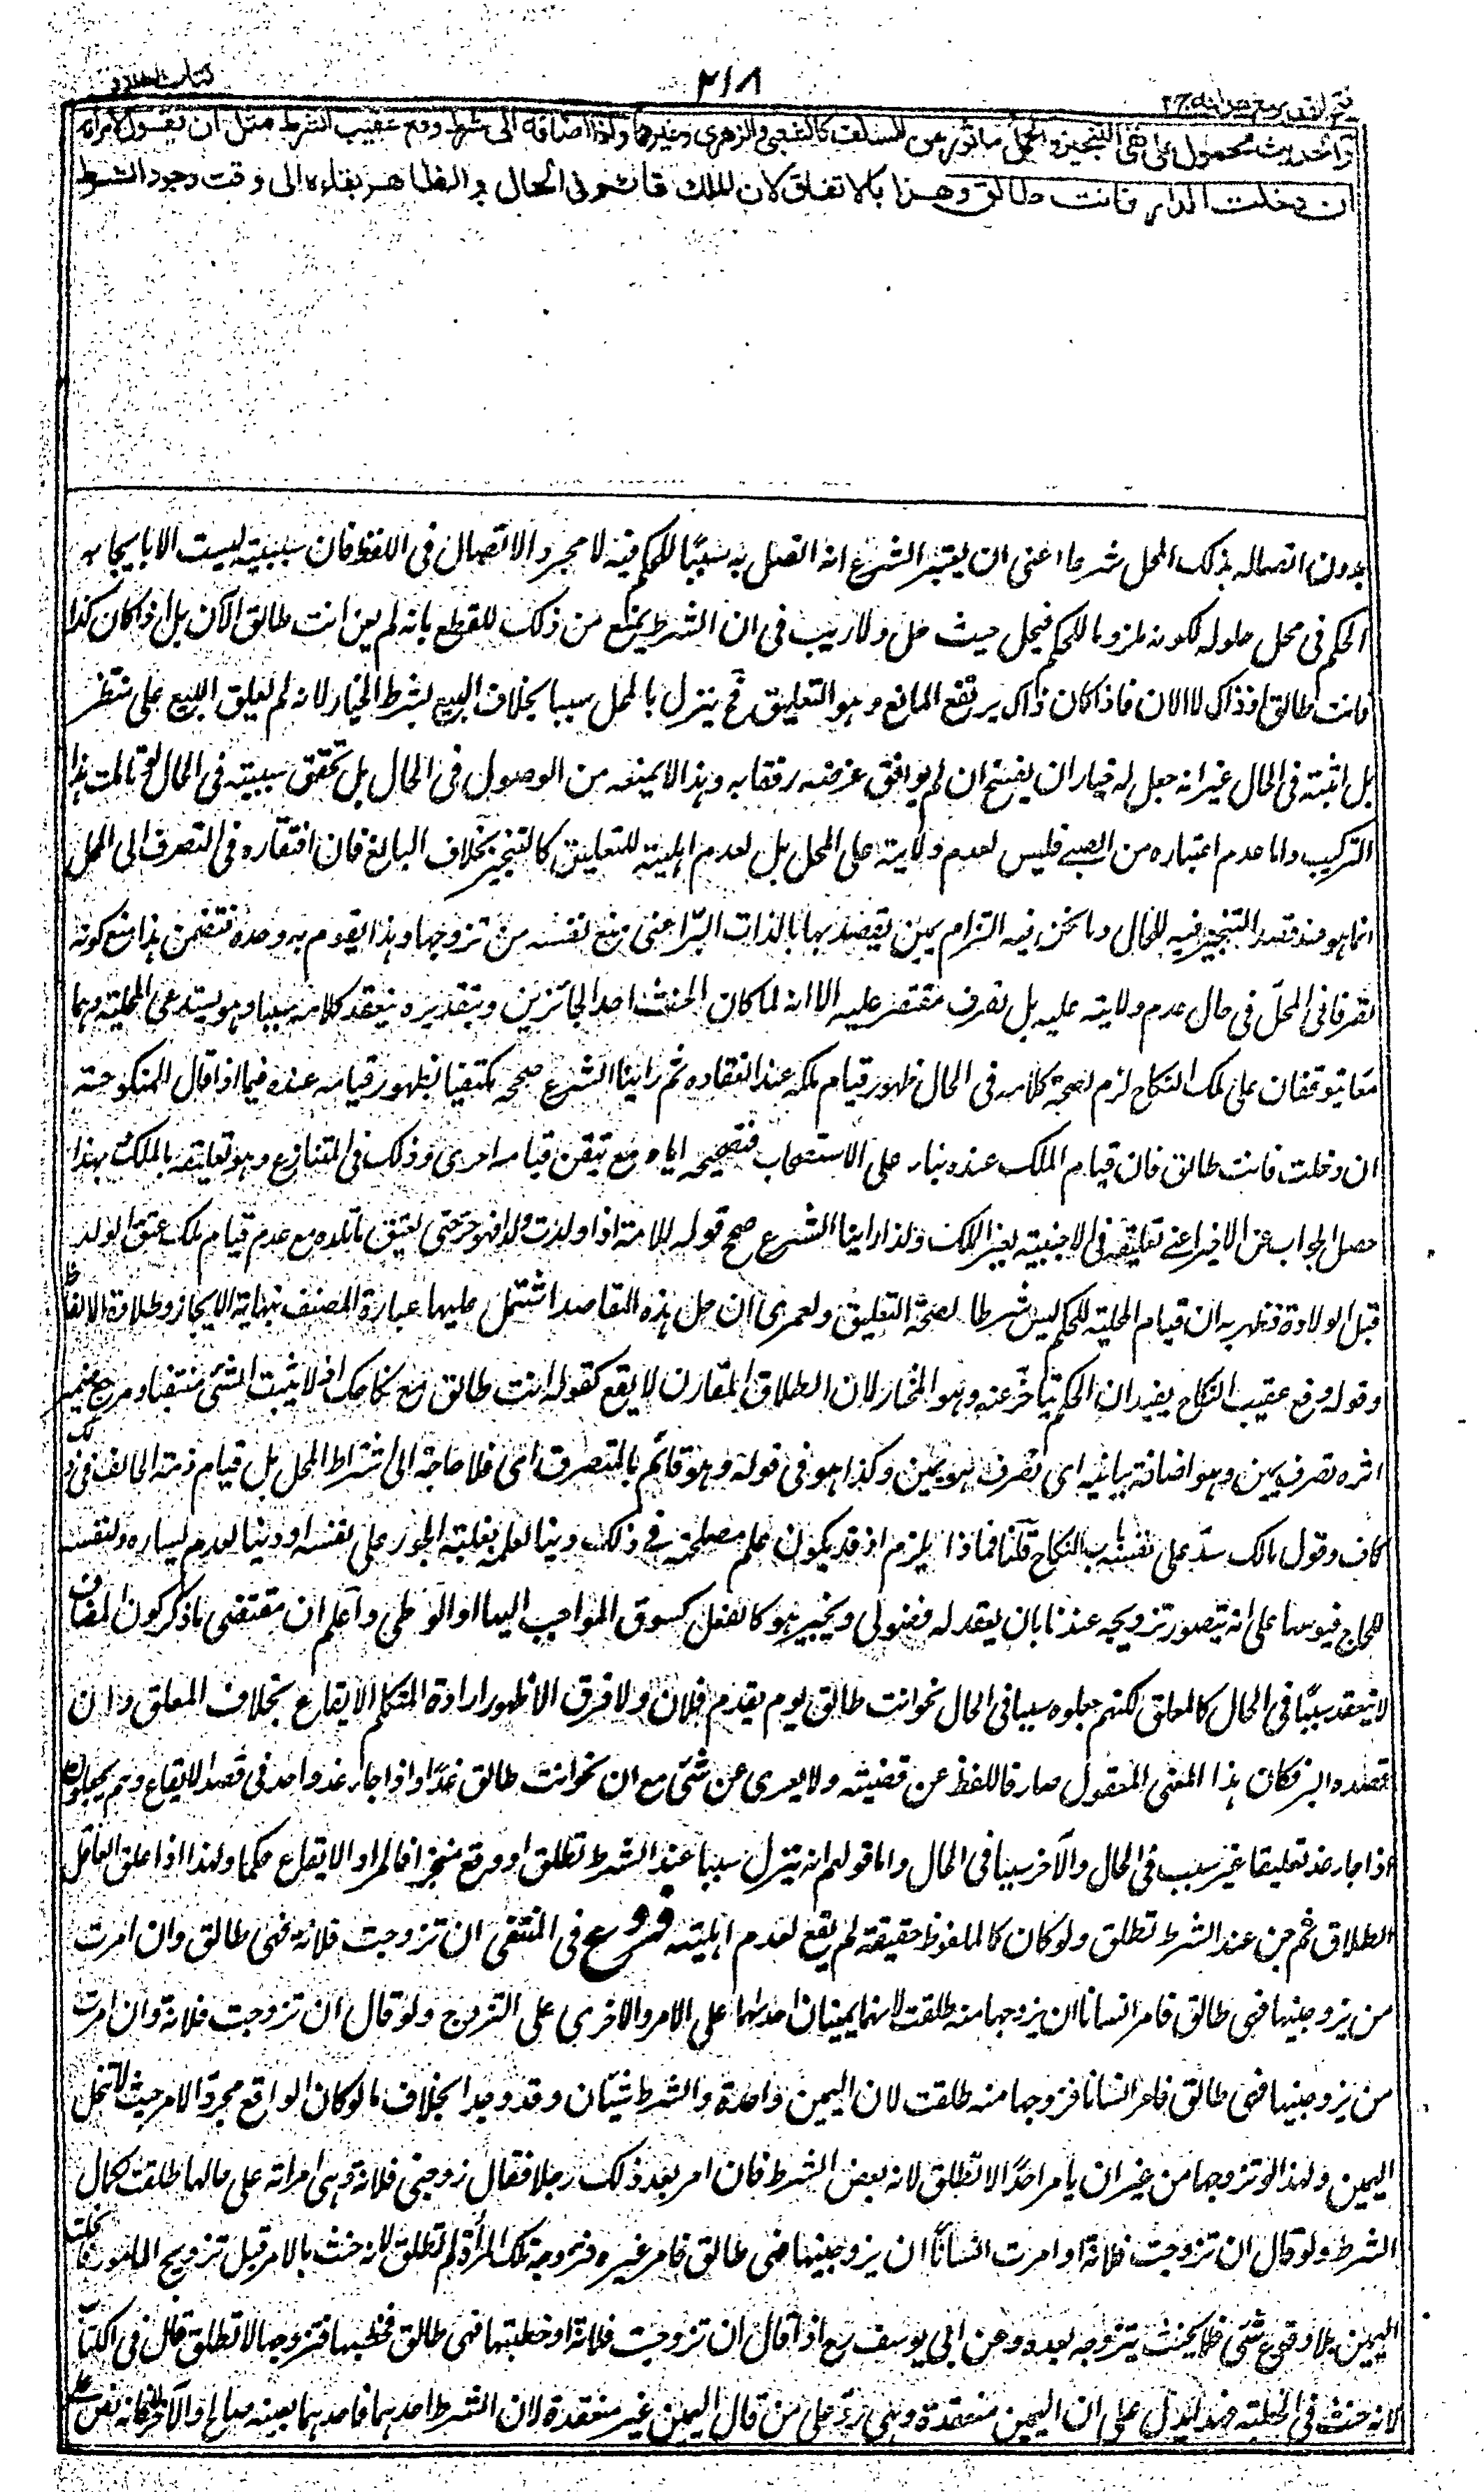 ٢١٨
كتاب الطلاق
فتح القدير مع هداية ج٢
والحديث محمول على نفي التنجيز والحمل ماثور عن السلف كالشعبي والزهري وغيرهما واذا اضافه الى شرط وقع عقيب الشرط مثل ان يقول لامرأته
ان دخلت الدار فانت طالق وهذا بالاتفاق لان الملك قائم في الحال والظاهر بقاءه الى وقت وجود الشرط
بدون اتصاله بذلك المحل شرعا اعنى ان يعتبر الشرع انه اتصل به سببًا للحكم فيه لا مجرد الاتصال فى اللفظ فان سببيته ليست الا بايجابه
الحكم فى محل حلوله لكونه ملزوما للحكم فيحل حيث حل ولا ريب فى ان الشرط يمنع من ذلك للقطع بانه لم يعن انت طالق الآن بل اذا كان كذا
فانت طالق اذ ذاك لا الآن فاذا كان ذاك يرتفع المانع وهو التعليق فح ينزل بالمحل سببا بخلاف البيع بشرط الخيار لانه لم يعلق البيع على منتظر
بل اثبته فى الحال غير انه جعل له خيار ان يفسخ ان لم يوافق غرضه رفقا به وهذا لا يمنعه من الوصول فى الحال بل تحقق سببيته فى الحال هذا
التركيب واما عدم اعتباره من الصبى فليس لعدم ولايته على المحل بل لعدم اهليته للتعليق كالتنجيز بخلاف البالغ فان افتقاره فى التصرف الى المحل
انما هو عند قصد التنجيز فيه للحال وما نحن فيه التزام يمين يقصد بها بالذات البرّ اعنى منع نفسه من تزوجها وهذا يقوم به وحده فتضمن هذا منع كونه
تصرفا فى المحلّ فى حال عدم ولايته عليه بل تصرف مقتصر عليه الا انه لما كان الحنث احد الجائزين وبتقديره ينعقد كلامه سببا وهو يستدعى المحلية وهما
معا يتوقفان على ملك النكاح لزم لصحة كلامه فى الحال ظهور قيام ملكه عند انعقاده ثم راينا الشرع صححه مكتفيا بظهور قيامه عنده فيما اذا قال للمنكوحة
ان دخلت فانت طالق فان قيام الملك عنده بناء على الاستصحاب فتصحيحه اياه مع تيقن قيامه احرى وذلك فى المتنازع وهو تعليقه بالملك وبهذا
حصل الجواب عن الاخير اعنى تعليقه فى الاجنبية بغير الملك ولذا راينا الشرع صحح قوله للامة اذا ولدت ولدا فهو حر حتى يعتق ما تلده مع عدم قيام ملك عتق الولد
قبل الولادة فظهر به ان قيام المحلية للحكم ليس شرطا لصحة التعليق ولعمرى ان جل هذه المقاصد اشتمل عليها عبارة المصنف بنهاية الايجاز وطلاوة الالفاظ
وقوله وقع عقيب النكاح يفيد ان الحكم يتاخّر عنه وهو المختار لان الطلاق المقارن لا يقع كقوله انت طالق مع نكاحك اذ لا يثبت الشئ منتفيا ومرجع ضمير
اثره تصرف يمين وهو اضافة بيانية اى تصرف هو يمين وكذا هو فى قوله وهو قائم بالمتصرف اى فلا حاجة الى اشتراط المحل بل قيام ذمة الحالف فى ذلك
كاف وقول مالك سدّ على نفسه باب النكاح قلنا فماذا يلزم اذ قد يكون علم مصلحته فى ذلك دينا لعلمه بغلبة الجور على نفسه او دنيا لعدم يساره ولنفسه
لجاج فيؤسها على انه يتصور تزويجه عندنا بان يعقد له فضولى ويجيز هو كالفعل كسوق الواجب اليها او الوطى واعلم ان مقتضى ما ذكر كون المضاف
لا ينعقد سببًا فى الحال كالمعلق لكنهم جعلوه سببا فى الحال نحو انت طالق يوم يقدم فلان ولا فرق الا ظهور ارادة المتكلم الايقاع بخلاف المعلق وان
قصده البر فكان هذا المعنى المعقول صارفا للفظ عن قضيته ولا يعرى عن شئ مع ان نحو انت طالق غدًا واذا جاء غد واحد فى قصد الايقاع وهم يجعلون
اذا جاء غد تعليقا غير سبب فى الحال والآخر سببا فى الحال واما قولهم انه ينزل سببا عند الشرط تطلق او وقع منجزا فالمراد الايقاع حكما ولهذا اذا علق العاقل
الطلاق ثم جن عند الشرط تطلق ولو كان كالملفوظ حقيقة لم يقع لعدم اهليته فروع فى المنتقى ان تزوجت فلانة فهى طالق وان امرت
من يزوجنيها فهى طالق فامر انسانا ان يزوجها منه طلقت لانهما يمينان احدهما على الامر والاخرى على التزوج ولو قال ان تزوجت فلانة وان امرت
من يزوجنيها فهى طالق فامر انسانا فزوجها منه طلقت لان اليمين واحدة والشرط شيئان وقد وجدا بخلاف ما لو كان الواقع مجرد الامر حيث لا تنحل
اليمين ولهذا لو تزوجها من غير ان يأمر احدًا لا تطلق لانه بعض الشرط فان امر بعد ذلك رجلا فقال زوجنى فلانة وهى امراته على حالها طلقت لكمال
الشرط ولو قال ان تزوجت فلانة او امرت انسانًا ان يزوجنيها فهى طالق فامر غيره فزوجه تلك المرأة لم تطلق لانه حنث بالامر قبل تزويج المامور فانحلت
اليمين بلا وقوع شئ فلا يحنث بتزوجه بعده وعن ابى يوسف رح اذا قال ان تزوجت فلانة او خطبتها فهى طالق فخطبها فتزوجها لا تطلق قال فى الكتاب
لانه حنث فى الخطبة فهذا يدل على ان اليمين منعقدة وهى ردّ على من قال اليمين غير منعقدة لان الشرط احدهما فاحدهما بعينه صالح والآخر